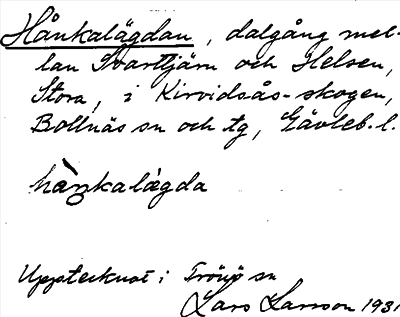 Hånkalägdan, dalgång mel-
lan Svarttjärn och Helsen,
Stora, i Kirvidsås-skogen,
Bollnäs sn och tg, Gävleb. l.
hånkalägda
Upptecknat i Trönö sn
Lars Larsson 1931